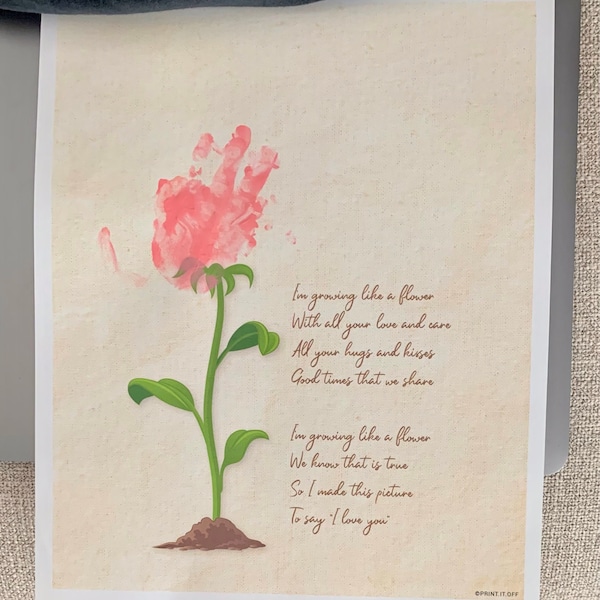 I'm growing like a flower
With all your love and care
All your hugs and kisses
Good times that we share
I'm growing like a flower
We know that is true
So I made this picture
To say "I love you"
©PRINT.IT.OFF